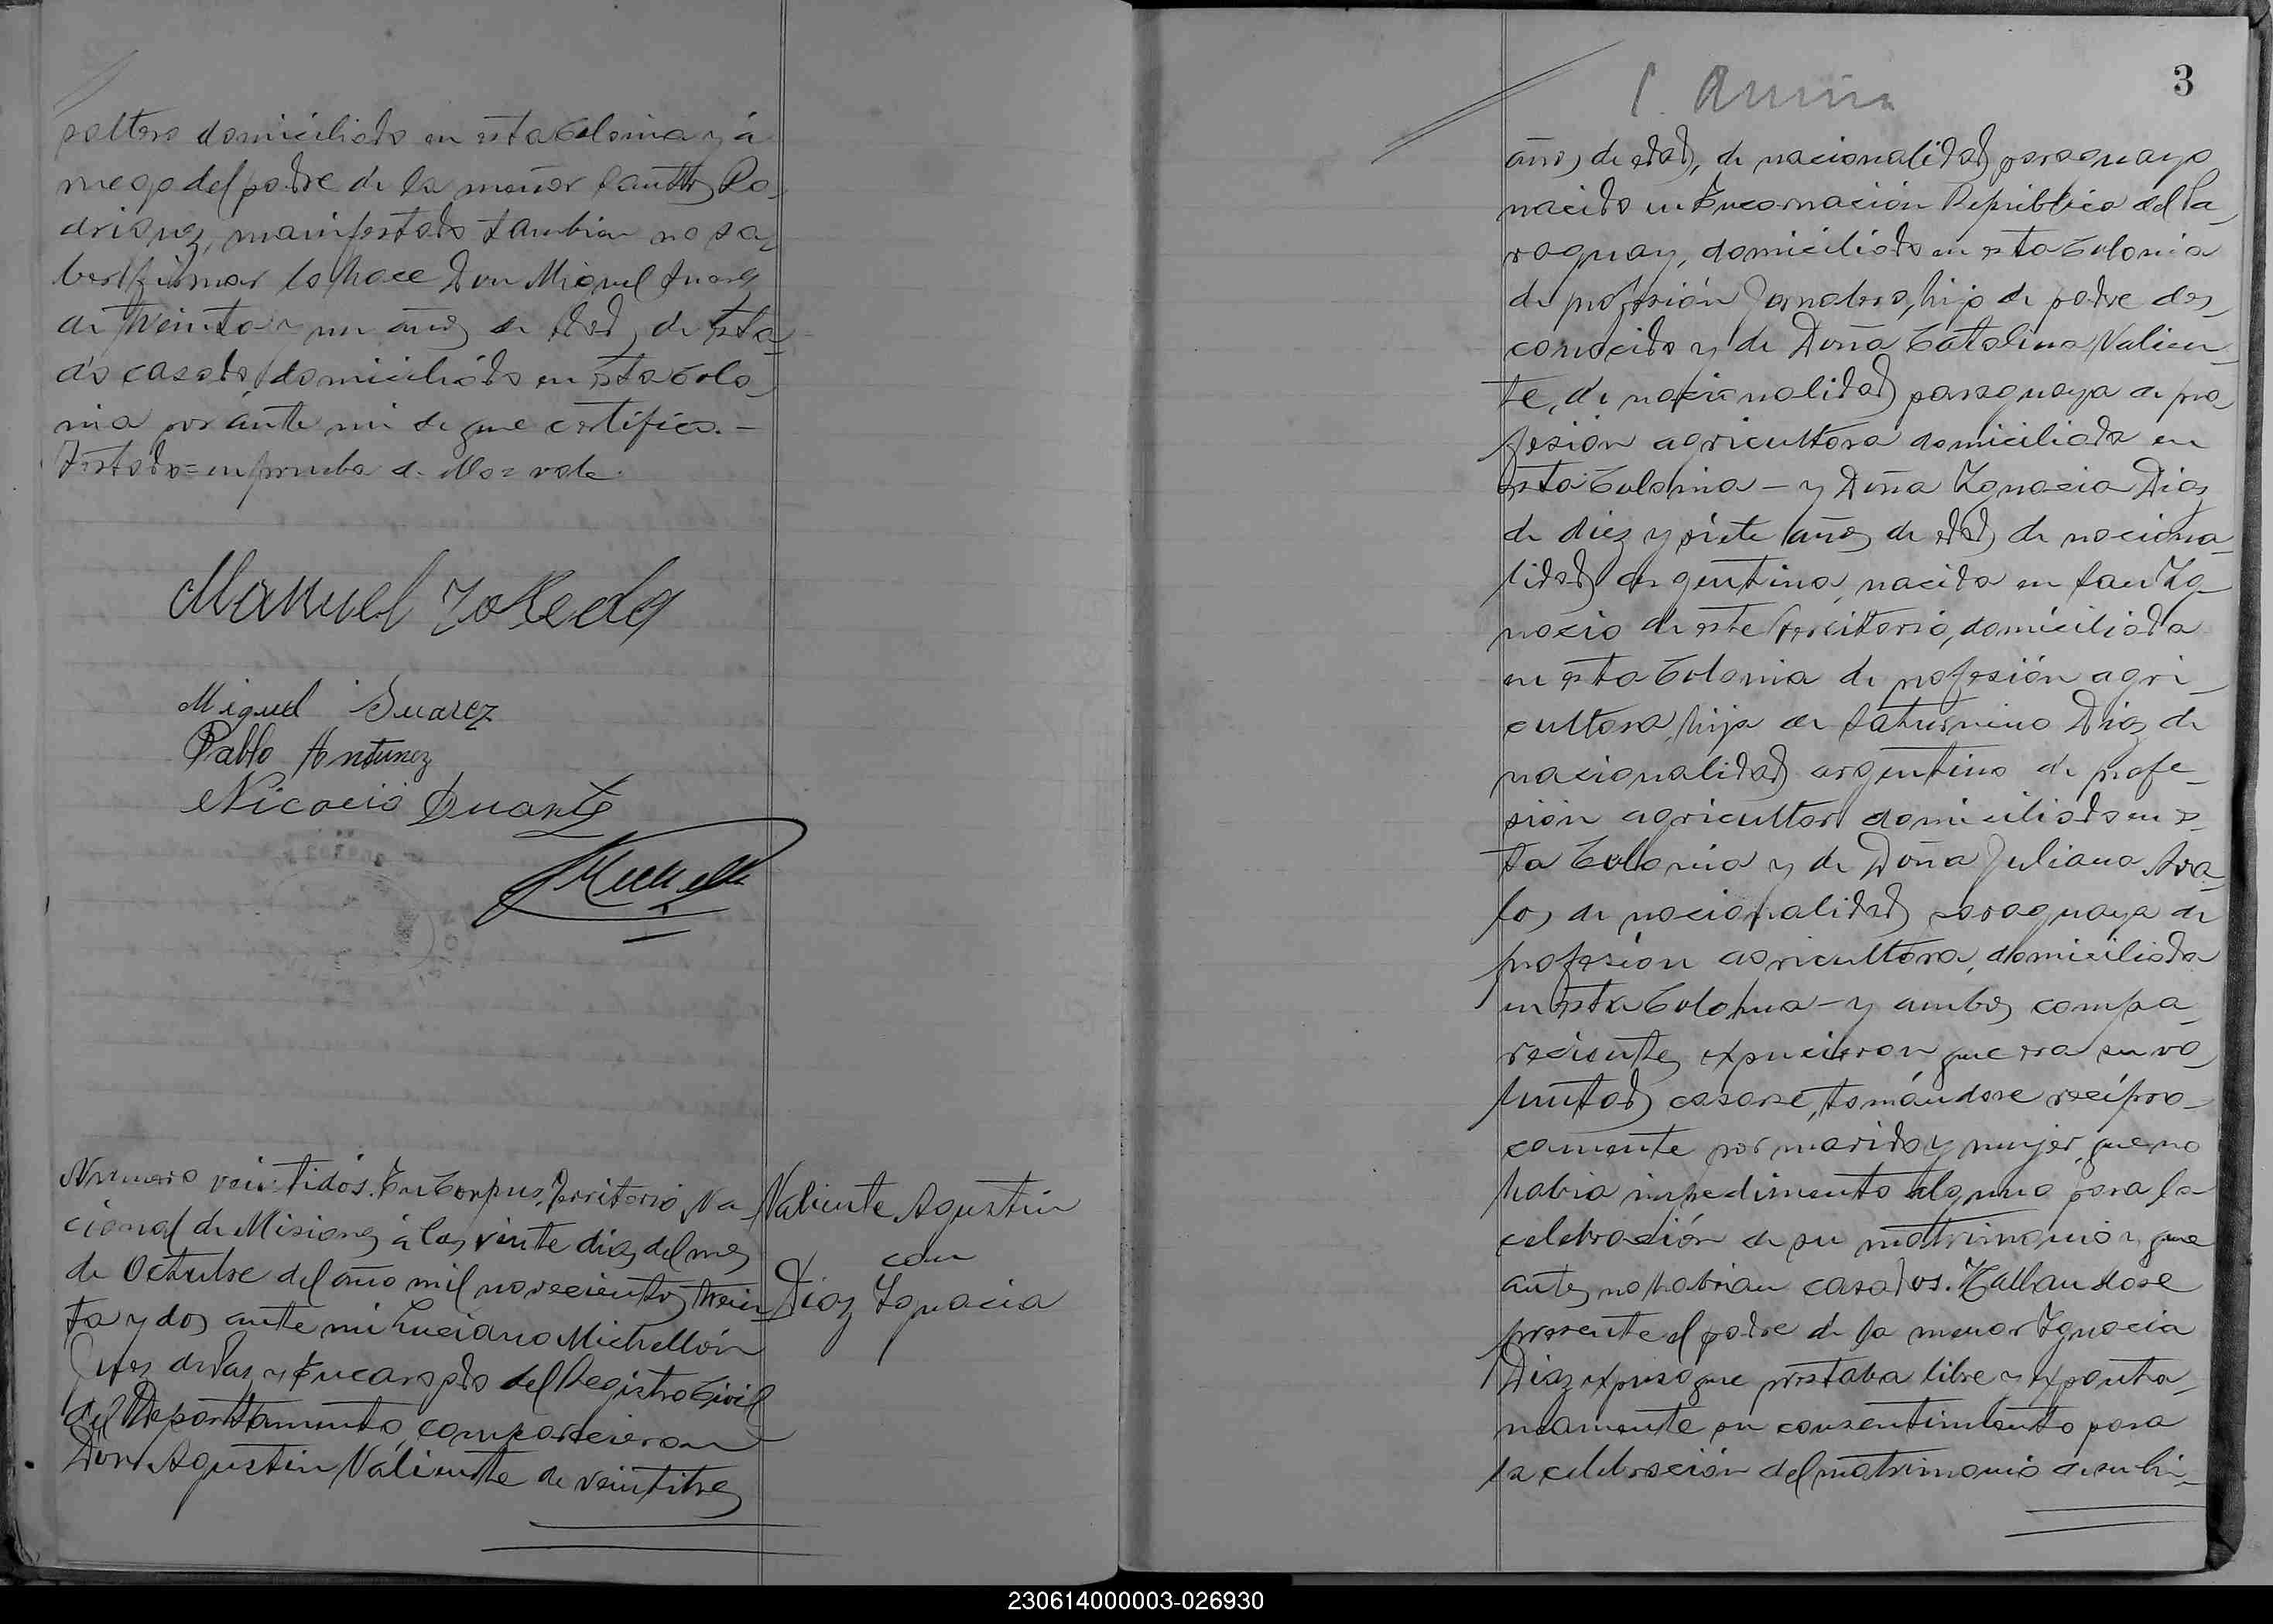 soltero domiciliado en esta Colonia y á
ruego del padre de la menor Santos Ro-
driguez, manifestado tambien no sa-
ber firmar lo hace Don Miguel Suarez
de treinta y un años de edad, de esta-
do casado, domiciliado en esta Colo-
nia por ante mi de que certifico.-
Testado=en prueba de ello=vale.
Manuel Toledo
Miguel Suarez
Pablo Antunez
Nicacio Duarte
Numero veintidós. En Corpus, Territorio Na-
cional de Misiones á los veinte dias del mes
de Octubre del año mil novecientos trein-
ta y dos ante mi Luciano Michellón
Juez de Paz y Encargado del Registro Civil
del Departamento, comparecieron
Don Agustin Valiente de veintitres
Valiente Agustin
con
Diaz Ignacia
3
años de edad, de nacionalidad paraguayo
nacido en Encarnación República del Pa-
raguay, domiciliado en esta Colonia
de profesión Jornalero, hijo de padre des-
conocido y de Doña Catalina Valien-
te, de nacionalidad paraguaya de pro-
fesión agricultora domiciliada en
esta Colonia - y Doña Ignacia Diaz
de diez y siete años de edad de naciona-
lidad argentina, nacida en San Ig-
nacio de este territorio, domiciliada
en esta Colonia de profesión agri-
cultora, hija de Saturnino Diaz de
nacionalidad argentino de profe-
sión agricultor domiciliado en es-
ta Colonia y de Doña Juliana Ava-
los de nacionalidad paraguaya de
profesión agricultora, domiciliada
en esta Colonia - y ambos compa-
recientes expucieron que era su vo-
luntad casarse, tomándose recípro-
camente por marido y mujer, que no
habia impedimento alguno para la
celebración de su matrimonio y que
antes no habian casados. Hallandose
presente el padre de la menor Ignacia
Diaz expuso que prestaba libre y exponta-
neamente su consentimiento para
la celebración del matrimonio de su hi-
230614000003-026930